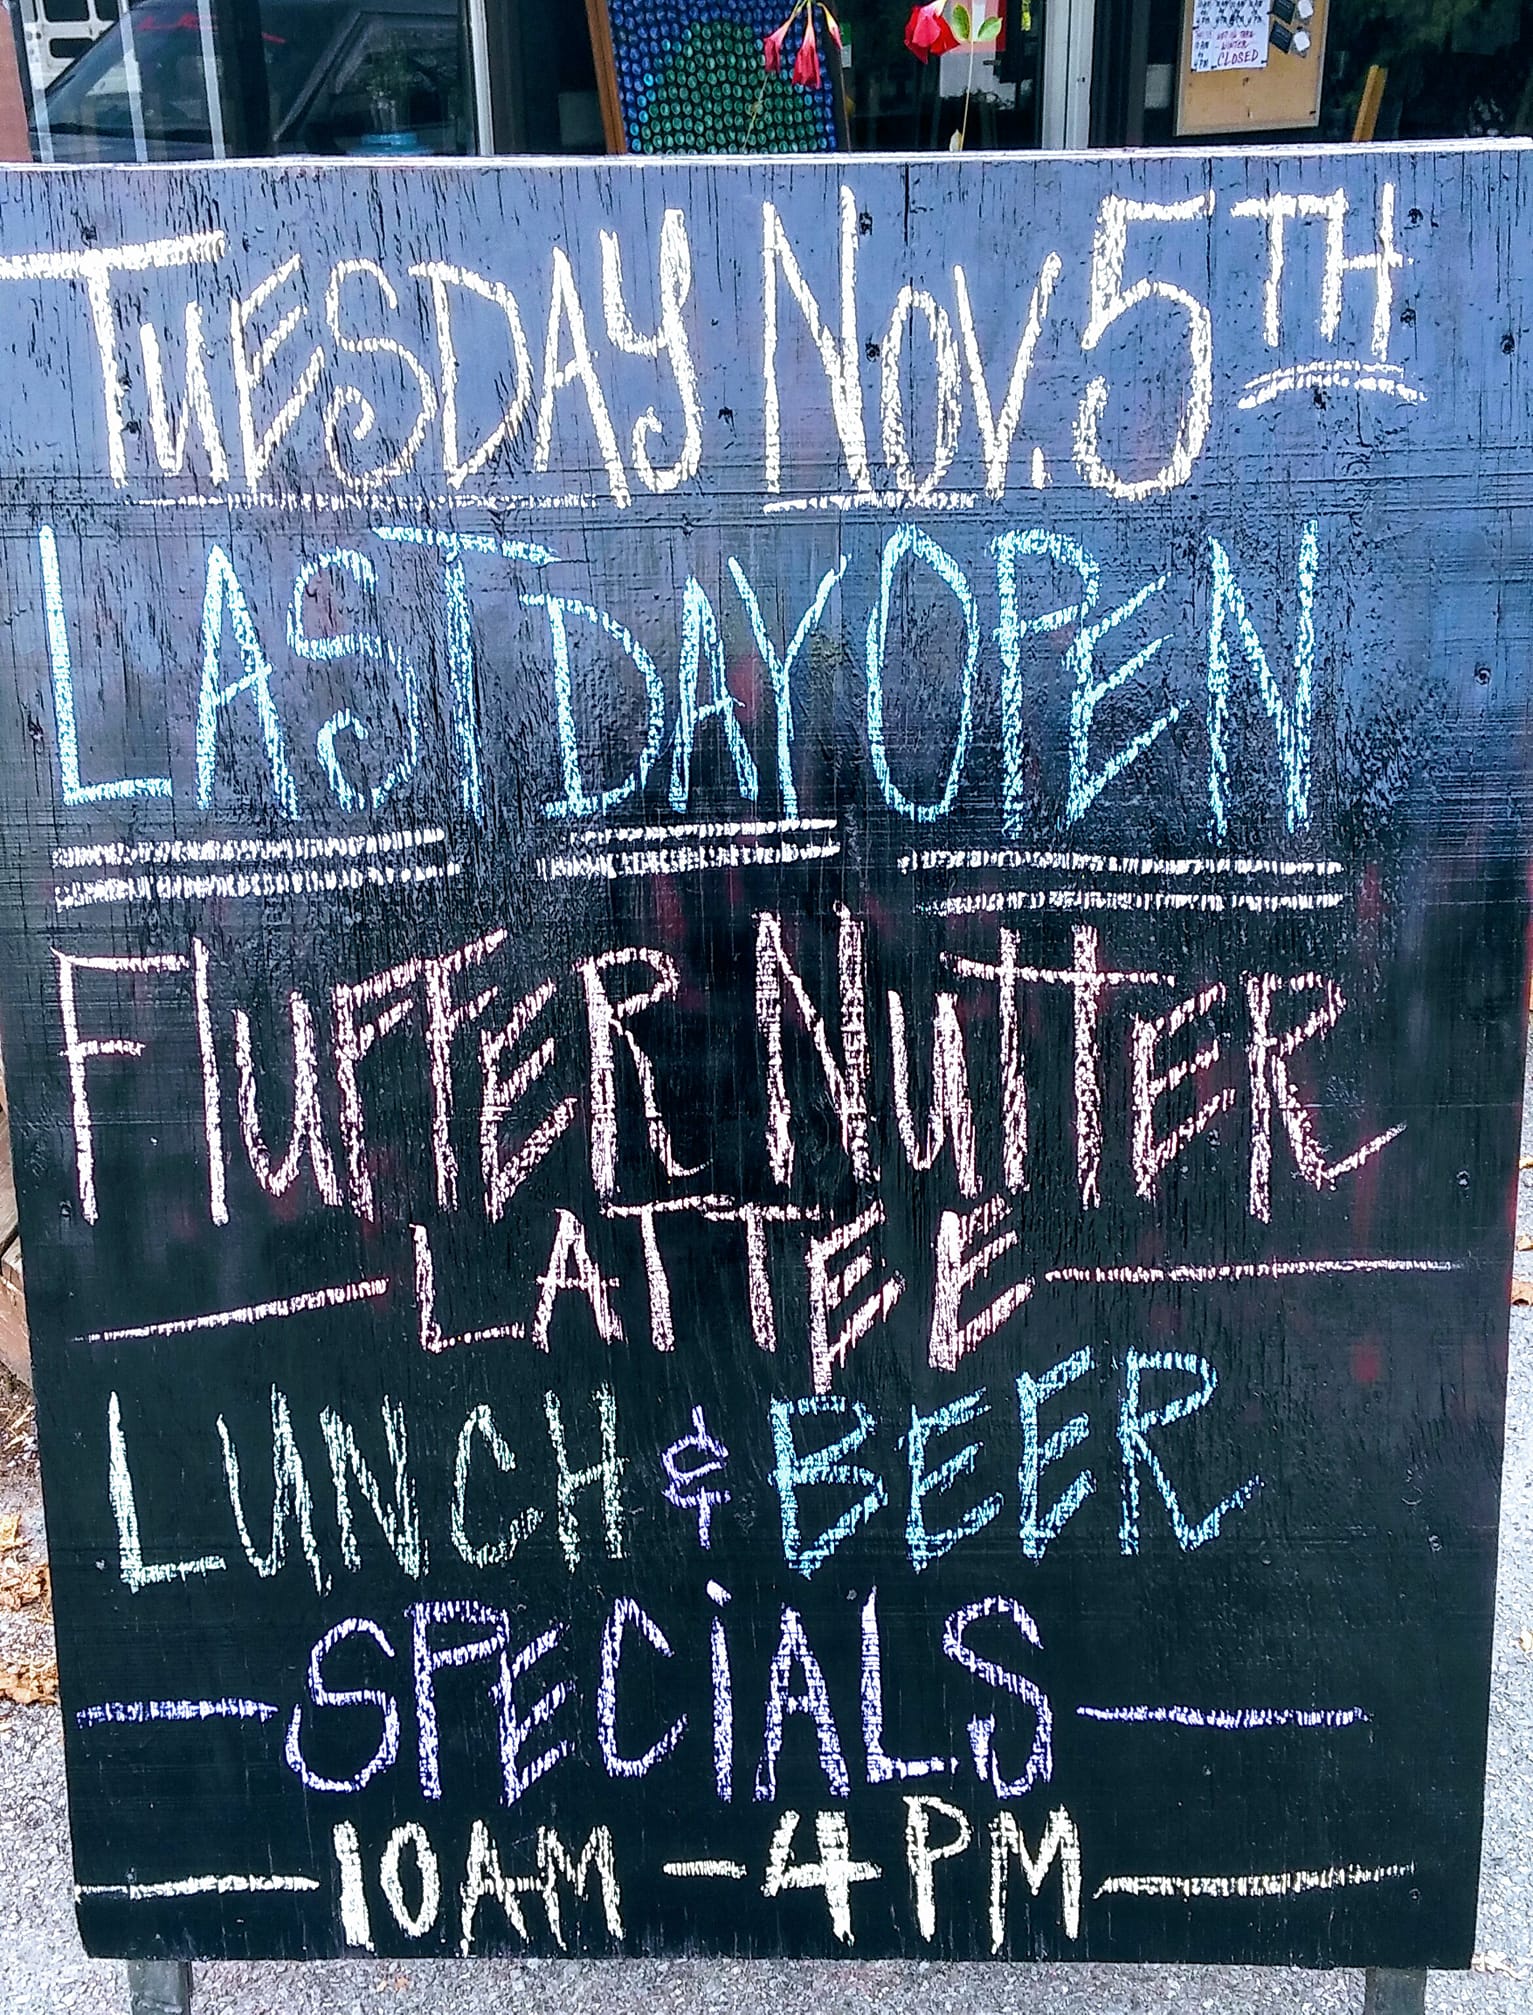 CLOSED
TUESDAY NOV. 5TH
LAST DAY OPEN
FluFFER NuTTER
LATTEE
LUNCH & BEER
SPECiALS
10AM - 4PM